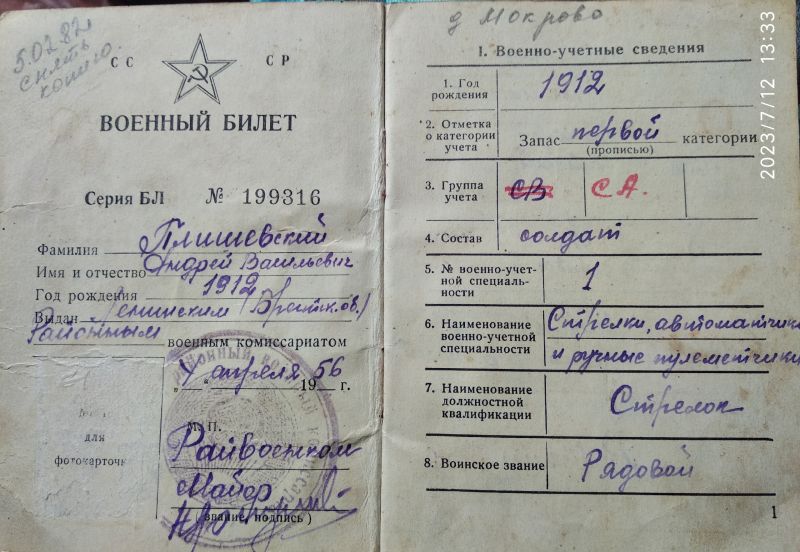 5.02.82
снять
копию.
СС СР
ВОЕННЫЙ БИЛЕТ
Серия БЛ № 199316
Фамилия Плишевский
Имя и отчество Андрей Васильевич
Год рождения 1912
Выдан Ленинским (Брестск. об.)
Районным
военным комиссариатом
апреля 1956 г.
для
фотокарточк
М. П.
Райвоенком
Майор
(звание, подпись)
д Мокрово
I. Военно-учетные сведения
1. Год рождения 1912
2. Отметка о категории учета Запас первой категории
(прописью)
3. Группа учета СВ СА.
4. Состав солдат
5. № военно-учет-
ной специаль-
ности 1
6. Наименование
военно-учетной
специальности Стрелки, автоматчики
и ручные пулеметчики
7. Наименование
должностной
квалификации Стрелок
8. Воинское звание Рядовой
1
2023/7/12 13:33